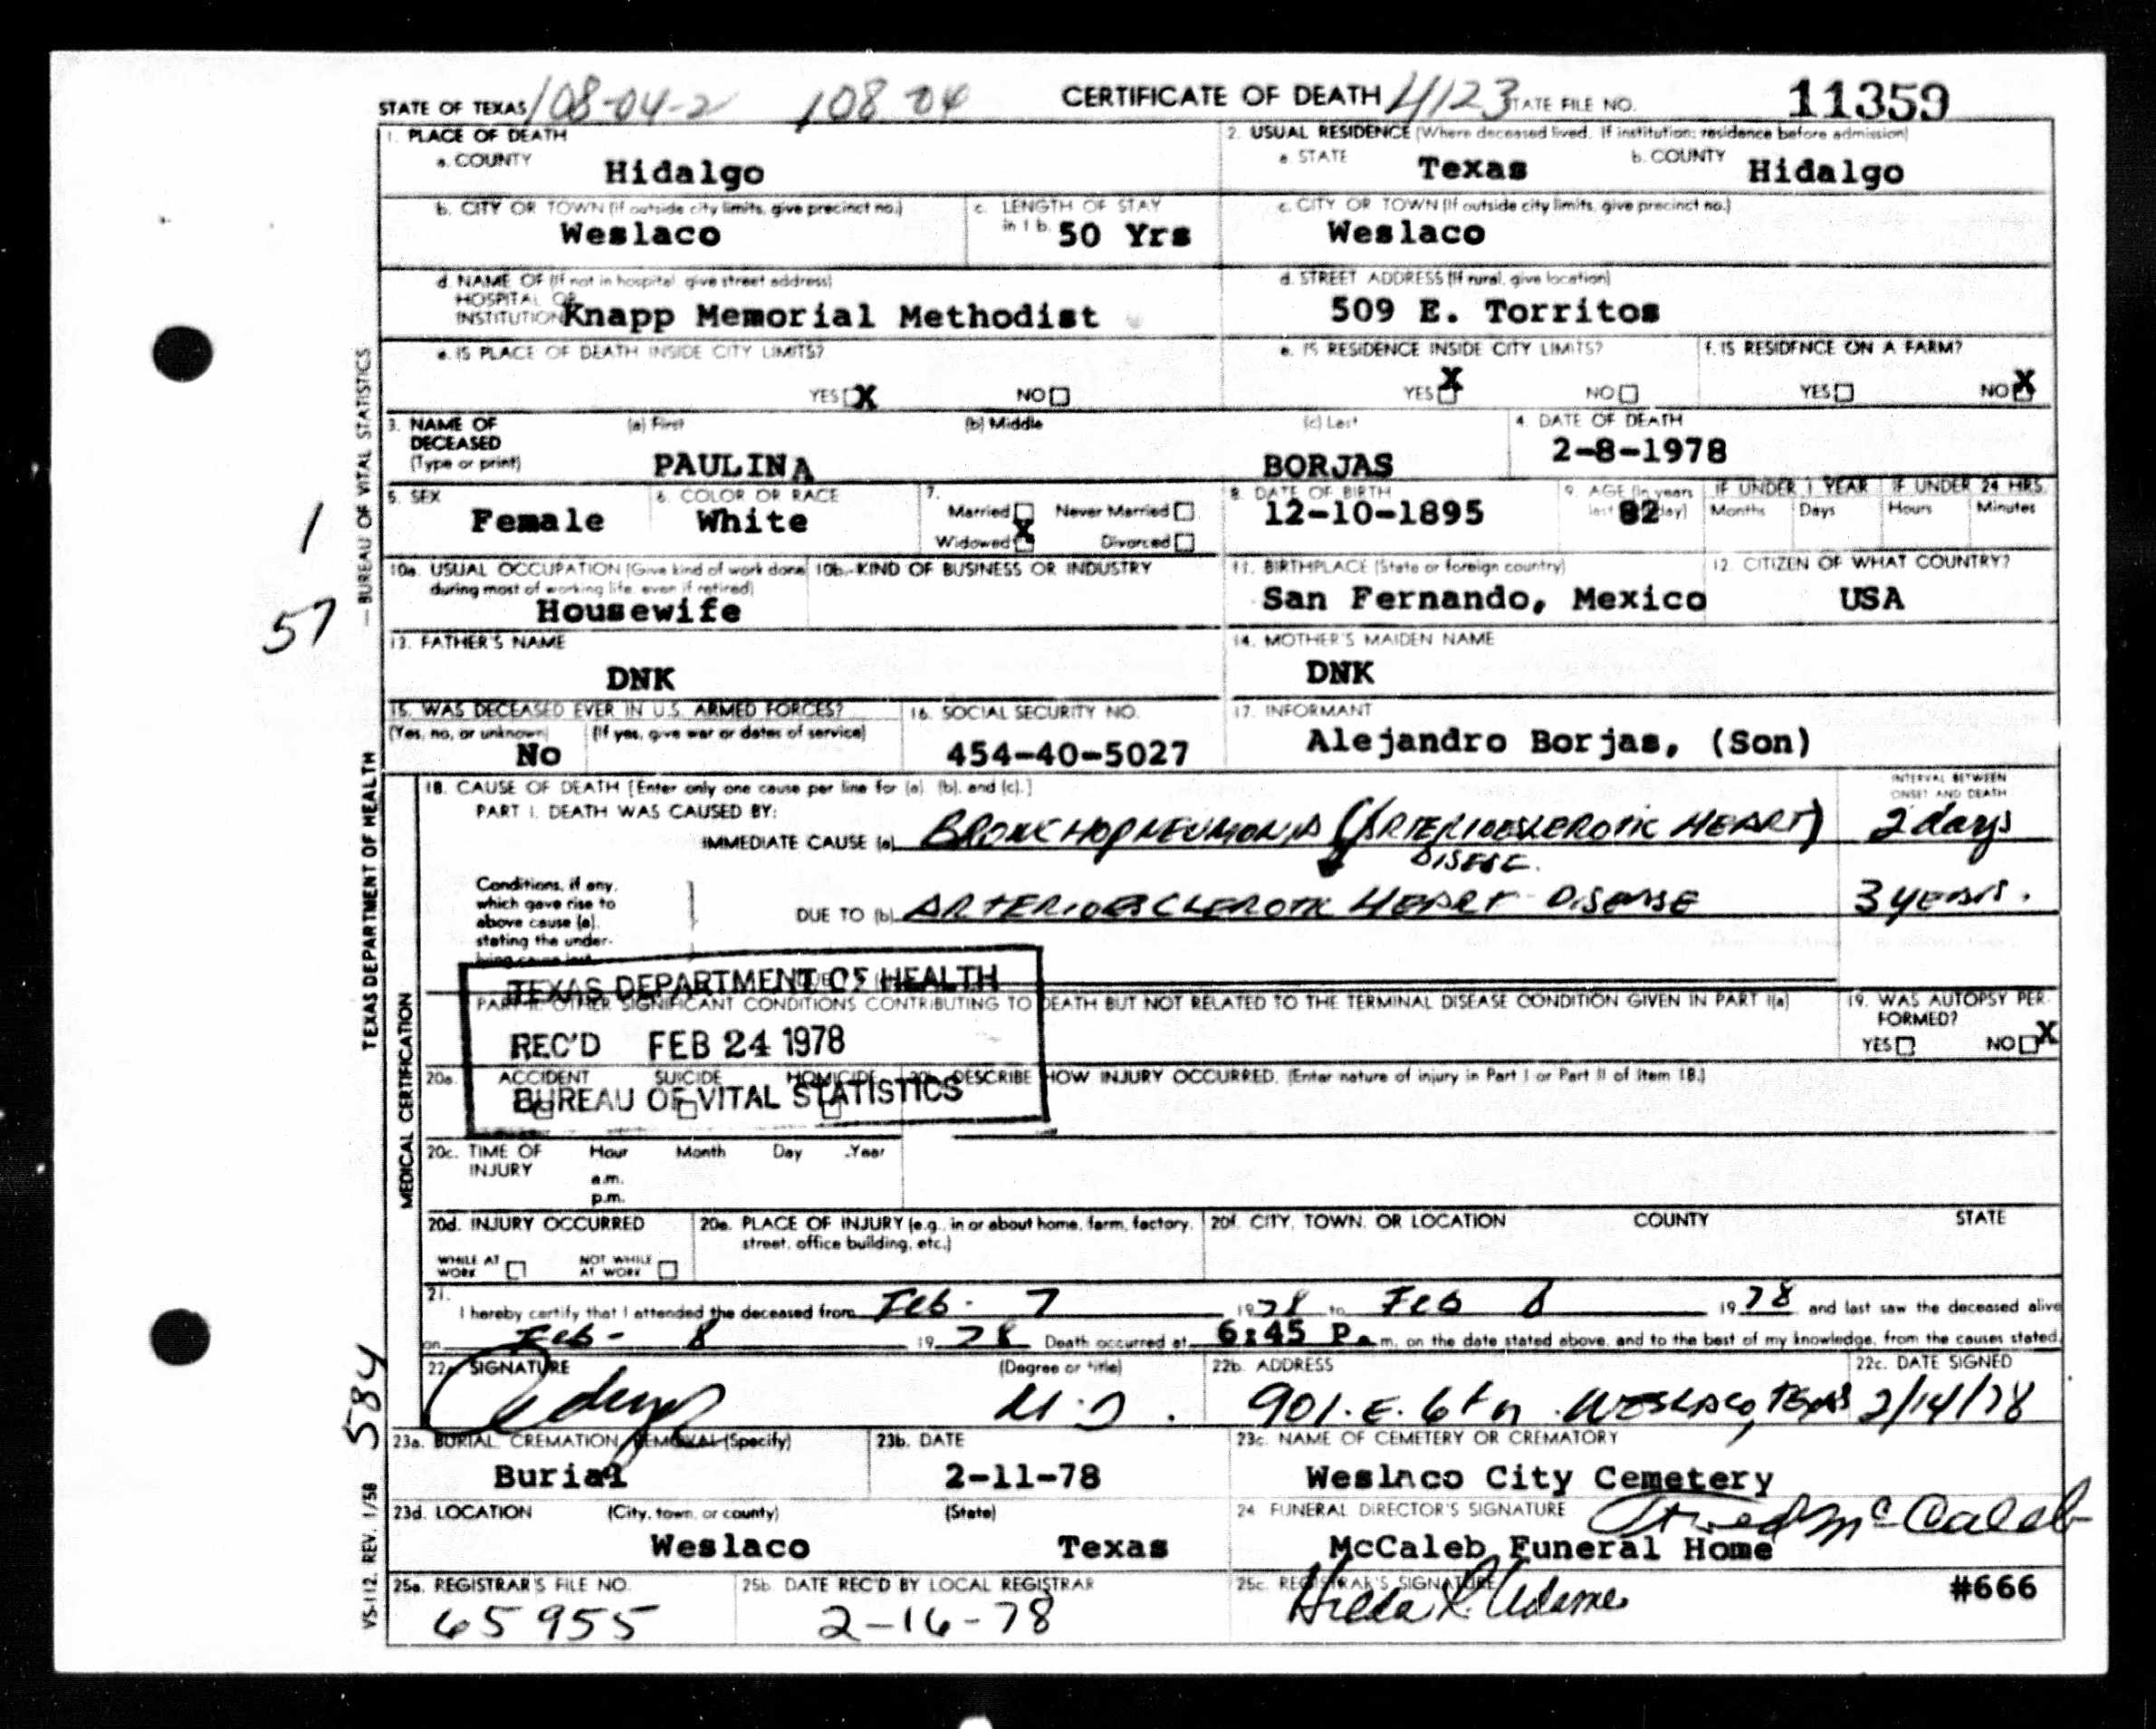 STATE OF TEXAS 108-04-2 108 04 CERTIFICATE OF DEATH 4123 STATE FILE NO. 11359
1. PLACE OF DEATH
a. COUNTY Hidalgo
2. USUAL RESIDENCE (Where deceased lived. If institution: residence before admission)
a. STATE Texas b. COUNTY Hidalgo
b. CITY OR TOWN (If outside city limits, give precinct no.) Weslaco
c. LENGTH OF STAY in 1 b. 50 Yrs
c. CITY OR TOWN (If outside city limits, give precinct no.) Weslaco
d. NAME OF (If not in hospital, give street address) HOSPITAL OR INSTITUTION Knapp Memorial Methodist
d. STREET ADDRESS (If rural, give location) 509 E. Torritos
e. IS PLACE OF DEATH INSIDE CITY LIMITS? YES X NO
e. IS RESIDENCE INSIDE CITY LIMITS? YES X NO
f. IS RESIDENCE ON A FARM? YES NO X
3. NAME OF DECEASED (Type or print) (a) First (b) Middle (c) Last
PAULINA BORJAS
4. DATE OF DEATH 2-8-1978
5. SEX Female
6. COLOR OR RACE White
7. Married Never Married
Widowed X Divorced
8. DATE OF BIRTH 12-10-1895
9. AGE (In years last birthday) 82
IF UNDER 1 YEAR Months Days
IF UNDER 24 HRS. Hours Minutes
10a. USUAL OCCUPATION (Give kind of work done during most of working life, even if retired) Housewife
10b. KIND OF BUSINESS OR INDUSTRY
11. BIRTHPLACE (State or foreign country) San Fernando, Mexico
12. CITIZEN OF WHAT COUNTRY? USA
13. FATHER'S NAME DNK
14. MOTHER'S MAIDEN NAME DNK
15. WAS DECEASED EVER IN U.S. ARMED FORCES?
(Yes, no, or unknown) (If yes, give war or dates of service)
No
16. SOCIAL SECURITY NO. 454-40-5027
17. INFORMANT Alejandro Borjas, (Son)
18. CAUSE OF DEATH [Enter only one cause per line for (a). (b). and (c).]
INTERVAL BETWEEN ONSET AND DEATH
PART I. DEATH WAS CAUSED BY:
IMMEDIATE CAUSE (a) BRONCHOPNEUMONIA (ARTERIOESLEROTIC HEART) 2 days
DISEASE.
Conditions, if any, which gave rise to above cause (a). stating the under-
DUE TO (b) ARTERIOESCLEROTIC HEART DISEASE 3 YEARS.
TEXAS DEPARTMENT OF HEALTH
REC'D FEB 24 1978
BUREAU OF VITAL STATISTICS
PART II. OTHER SIGNIFICANT CONDITIONS CONTRIBUTING TO DEATH BUT NOT RELATED TO THE TERMINAL DISEASE CONDITION GIVEN IN PART I(a)
19. WAS AUTOPSY PERFORMED? YES NO X
20a. ACCIDENT SUICIDE HOMICIDE
20b. DESCRIBE HOW INJURY OCCURRED. (Enter nature of injury in Part I or Part II of Item 18.)
20c. TIME OF INJURY Hour Month Day Year
a.m.
p.m.
20d. INJURY OCCURRED
WHILE AT WORK NOT WHILE AT WORK
20e. PLACE OF INJURY (e.g., in or about home, farm, factory, street, office building, etc.)
20f. CITY, TOWN, OR LOCATION COUNTY STATE
21. I hereby certify that I attended the deceased from Feb. 7 1978 to Feb 8 1978 and last saw the deceased alive
on Feb- 8 1978 Death occurred at 6:45 P. m, on the date stated above, and to the best of my knowledge, from the causes stated.
22a. SIGNATURE (Degree or title) M.D.
22b. ADDRESS 901. E. 6th. WESLACO, TEXAS
22c. DATE SIGNED 2/14/78
23a. BURIAL, CREMATION, REMOVAL (Specify) Burial
23b. DATE 2-11-78
23c. NAME OF CEMETERY OR CREMATORY Weslaco City Cemetery
23d. LOCATION (City, town, or county) (State)
Weslaco Texas
24 FUNERAL DIRECTOR'S SIGNATURE McCaleb
McCaleb Funeral Home
25a. REGISTRAR'S FILE NO. 65955
25b. DATE REC'D BY LOCAL REGISTRAR 2-16-78
25c. REGISTRAR'S SIGNATURE Hilda R. Adame
#666
TEXAS DEPARTMENT OF HEALTH — BUREAU OF VITAL STATISTICS
MEDICAL CERTIFICATION
VS-112, REV. 1/58
1
57
584